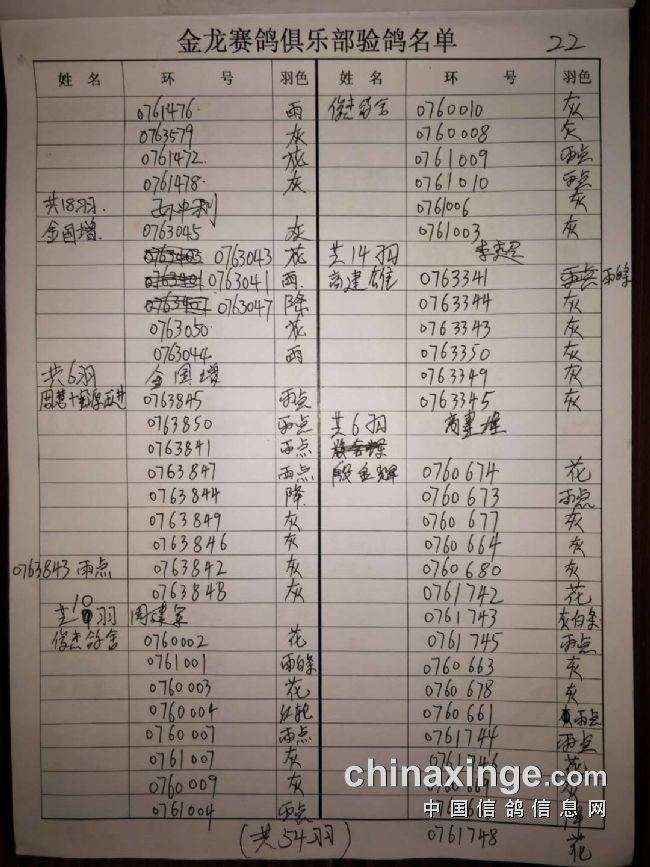 金龙赛鸽俱乐部验鸽名单 22
姓名 环号 羽色
0761476 雨
0763579 灰
0761472
0761478 灰
共18羽
金国增 0763045 灰
0763043 花
0763041 雨
0763047 降
0763050 花
0763044 雨
共6羽 金国增
0763845 雨点
0763850 雨点
0763841 雨点
0763847 雨点
0763844 降
0763849 灰
0763846 灰
0763843 雨点 0763842 灰
0763848 灰
共10羽 周建军
俊杰鸽舍 0760002 花
0761001 雨白条
0760003 花
0760004
0760007 雨点
0761007 灰
0760009 灰
0761004 雨点
(共54羽)
姓名 环号 羽色
俊杰鸽舍 0760010 灰
0760008 灰
0761009 雨点
0761010 雨点
0761006 灰
0761003 灰
共14羽
高建雄 0763341 雨白条
0763344 灰
0763343 灰
0763350 灰
0763349 灰
0763345 灰
共6羽 高建雄
殷金辉 0760674 花
0760673 雨点
0760677 灰
0760664 灰
0760680 灰
0761742 花
0761743 灰白条
0761745 雨点
0760663 灰
0760678 灰
0760661 雨点
0761744 雨点
0761746 花
灰
降
0761748 花
chinaxinge.com
中国信鸽信息网